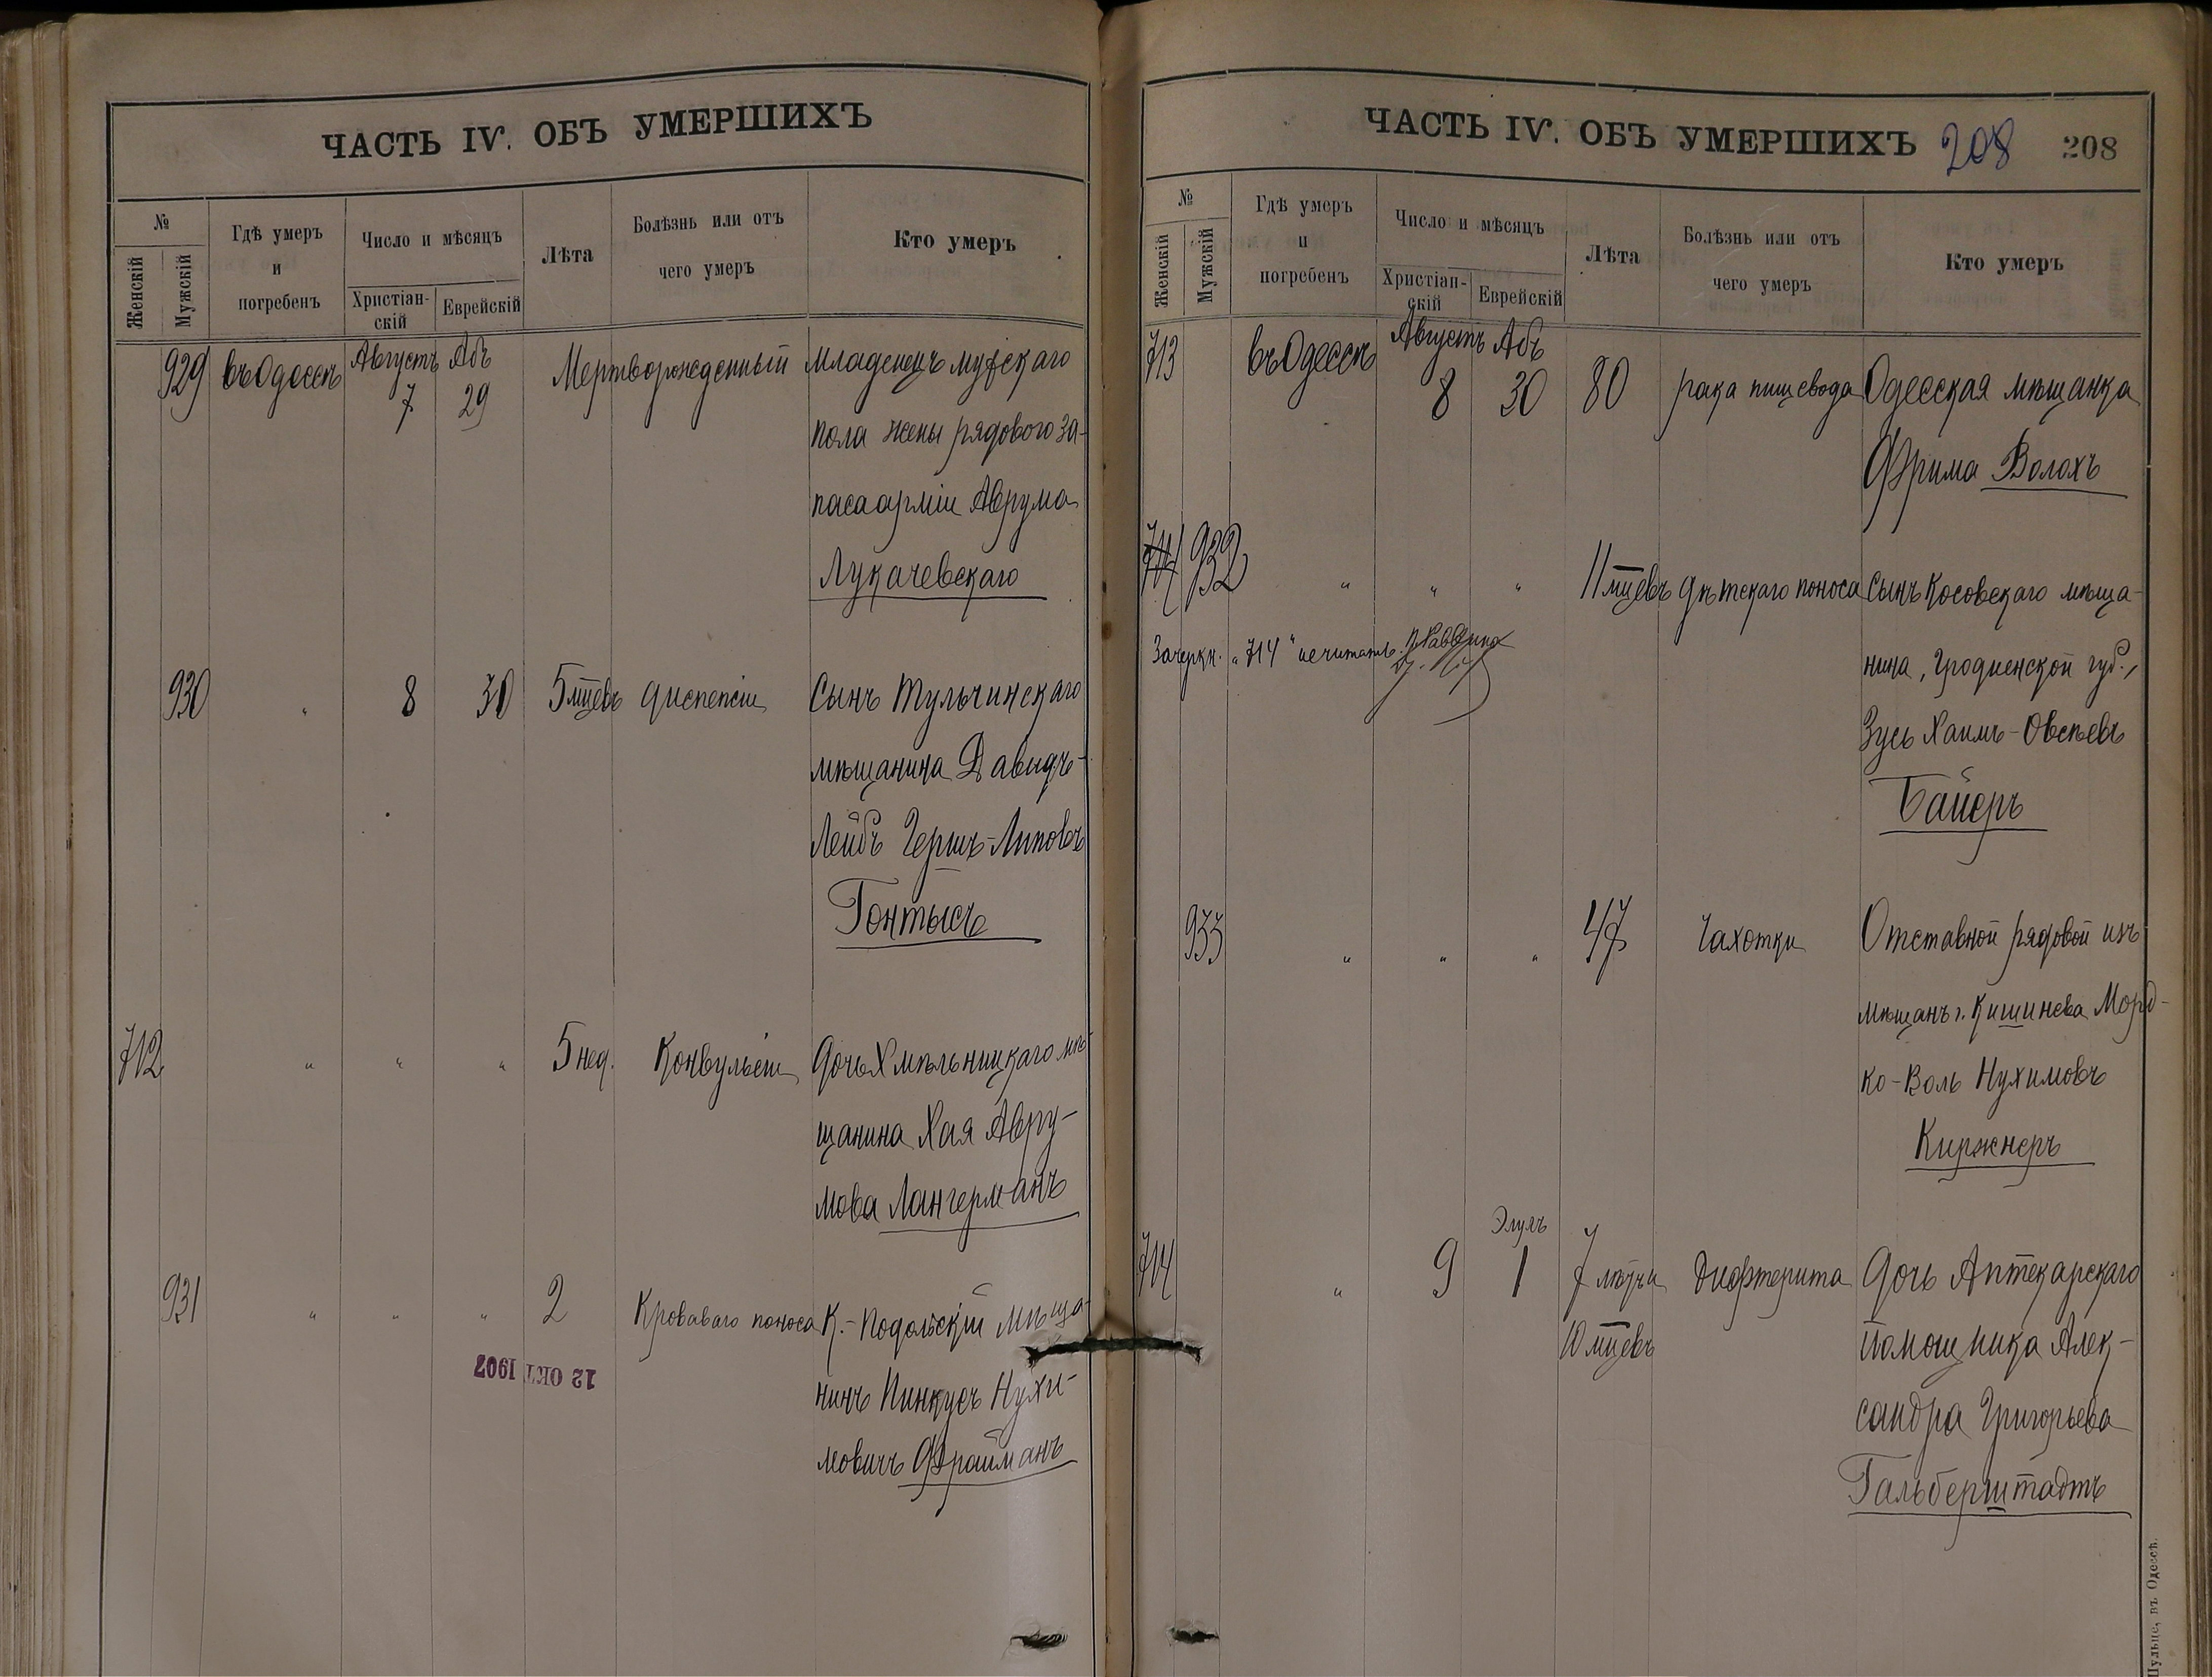 ЧАСТЬ IV. ОБЪ УМЕРШИХЪ
№
Женскій
Мужскій
Гдѣ умеръ
и
погребенъ
Число и мѣсяцъ
Христіан-
скій
Еврейскій
Лѣта
Болѣзнь или отъ
чего умеръ
Кто умеръ
929 въ Одессѣ Августъ 7 Абъ 29 Мертворожденный младенецъ мужскаго
пола жены рядового за-
паса арміи Аврума
Лукачевскаго
930 " 8 30 5 мцевъ диспепсіи Сынъ Тульчинскаго
мѣщанина Давидъ-
Лейбъ Гершъ-Липовъ
Гонтысъ
712 " " " 5 нед. Конвульсіи Дочь Хмѣльницкаго мѣ-
щанина Хая Авру-
мова Лангерманъ
931 " " " 2 Кроваваго поноса К.-Подольскій мѣща-
нинъ Пинкусъ Нухи-
мовичъ Фрайманъ
12 ОКТ 1907
ЧАСТЬ IV. ОБЪ УМЕРШИХЪ 208 208
№
Женскій
Мужскій
Гдѣ умеръ
и
погребенъ
Число и мѣсяцъ
Христіан-
скій
Еврейскій
Лѣта
Болѣзнь или отъ
чего умеръ
Кто умеръ
713 въ Одессѣ Августъ 8 Абъ 30 80 рака пищевода Одесская мѣщанка
Фрима Волохъ
714 932 " " " 11 мцевъ дѣтскаго поноса Сынъ Косовскаго мѣща-
Зачеркн. "714" не читать.
нина, Гродненской губ.,
Зусь Хаимъ-Овсѣевъ
Байеръ
933 " " " 47 Чахотки Отставной рядовой изъ
мѣщанъ г. Кишинева Морд-
ко-Воль Нухимовъ
Киржнеръ
714 " 9 Элулъ 1 7 лѣтъ и Дифтерита Дочь Аптекарскаго
10 мцевъ помощника Алек-
сандра Григорьева
Гальберштадтъ
въ Одессѣ.